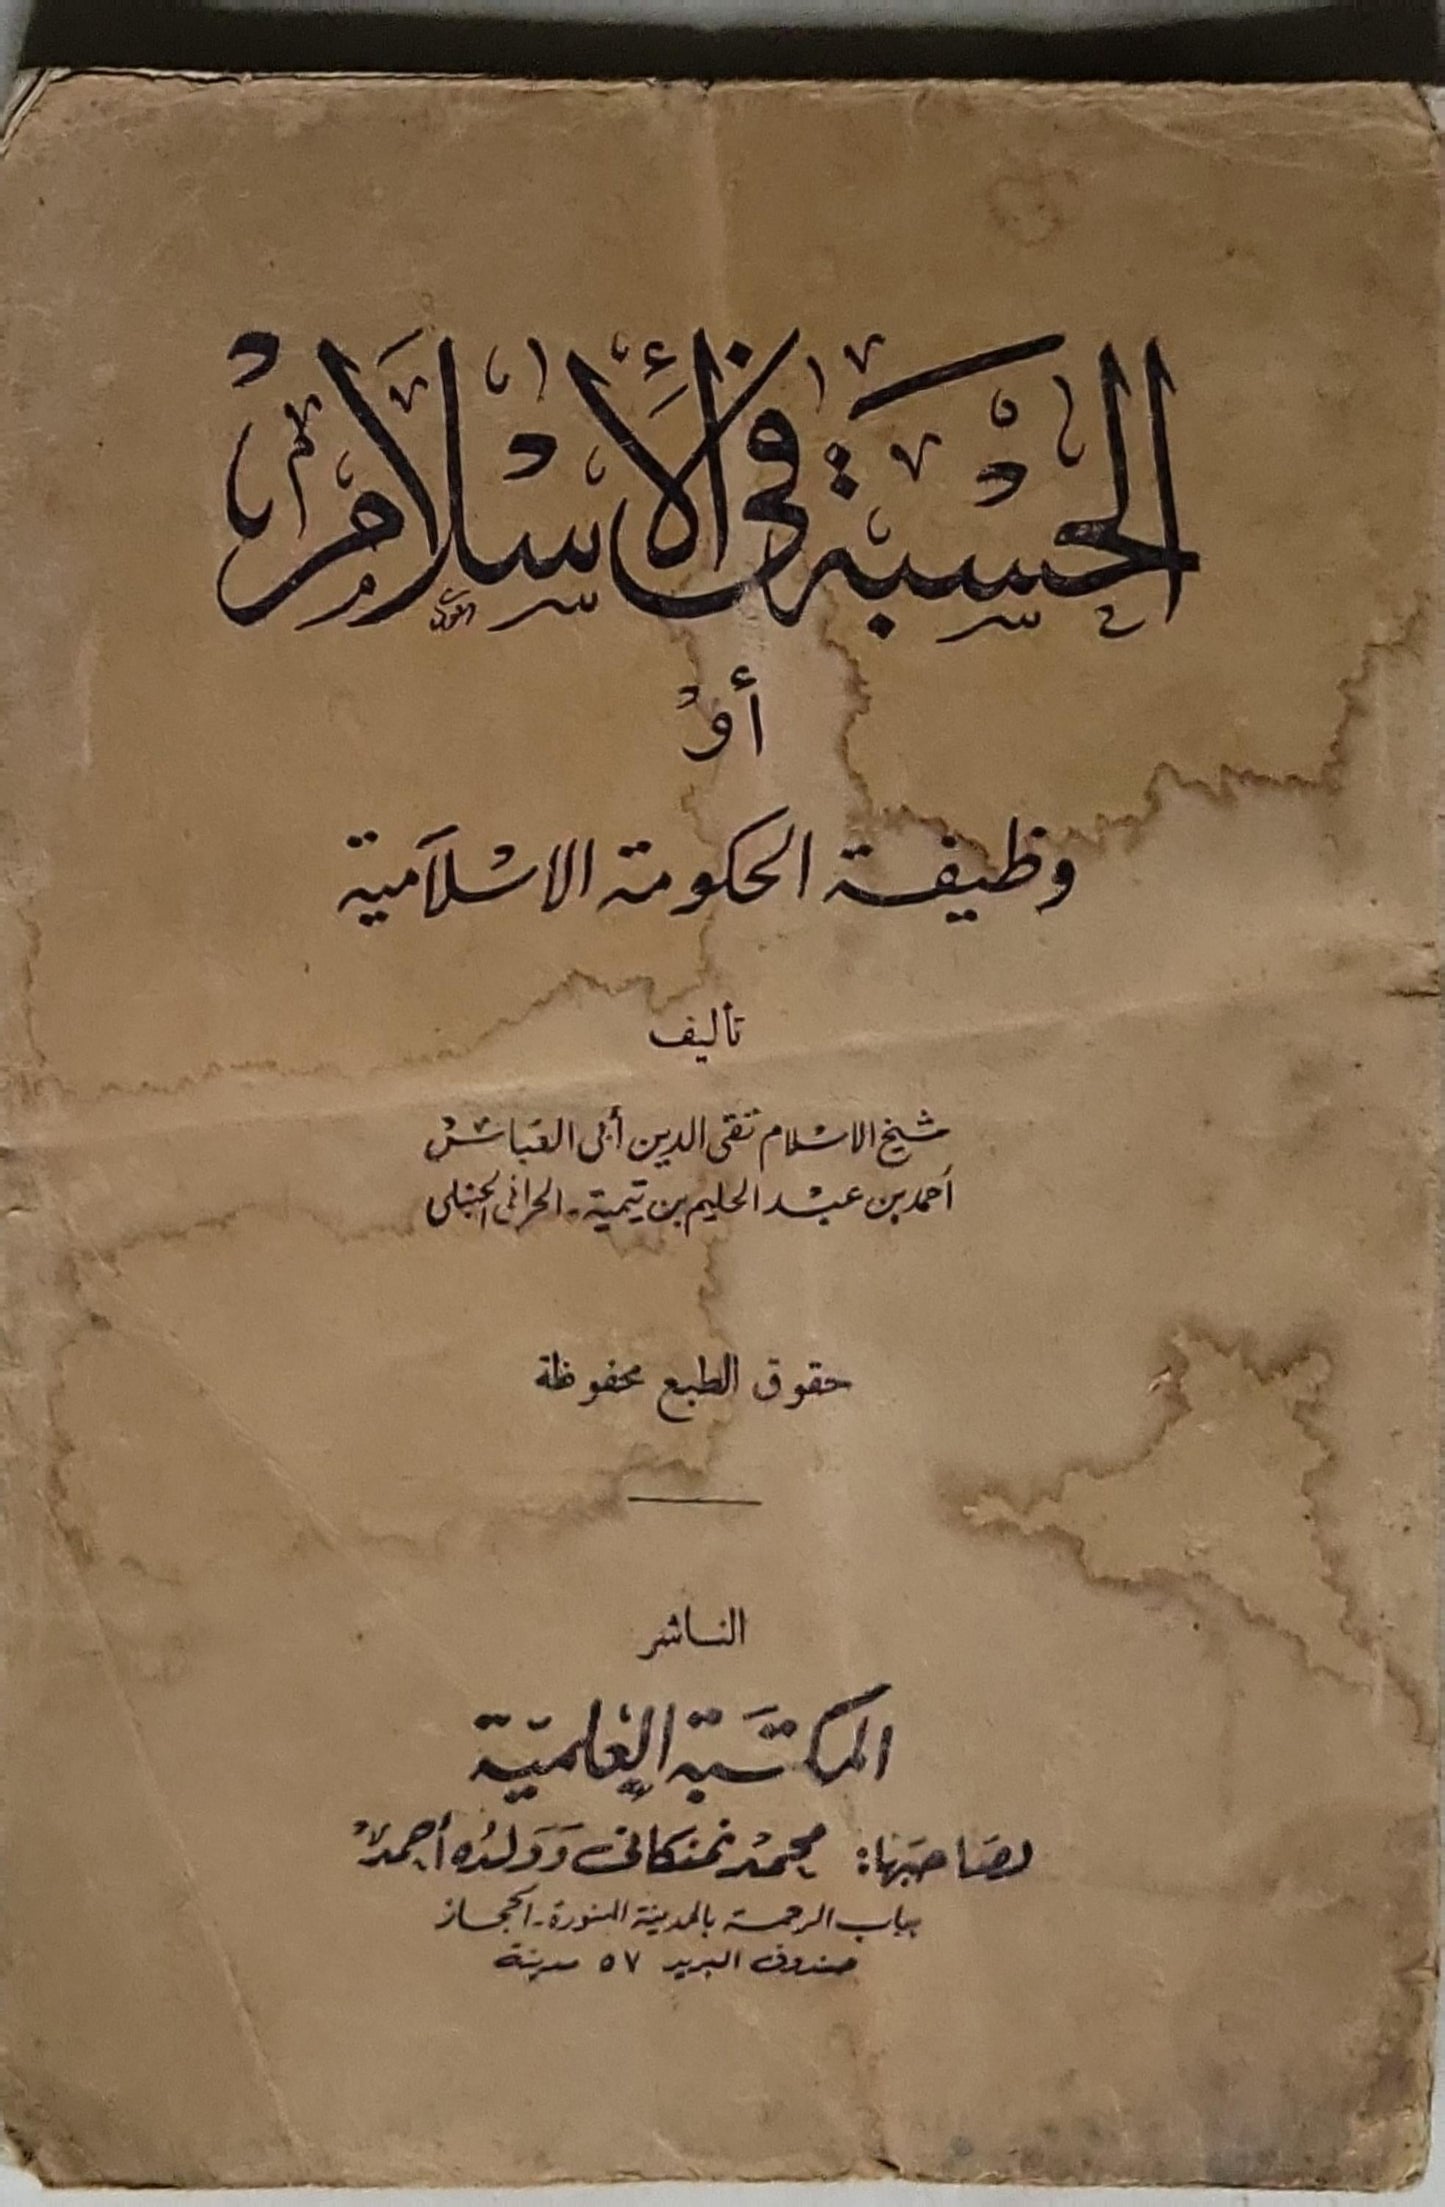 الحسبة في الأسلام
أو
وظيفة الحكومة الاسلامية
تأليف
شيخ الاسلام تقى الدين أبى العباس
أحمد بن عبد الحليم بن تيمية - الحرانى الحنبلى
حقوق الطبع محفوظة
الناشر
المكتبة العلمية
لصاحبها: محمد نمنكانى وولده أحمد
بباب الرحمة بالمدينة المنورة - الحجاز
صندوق البريد ٥٧ مدينة